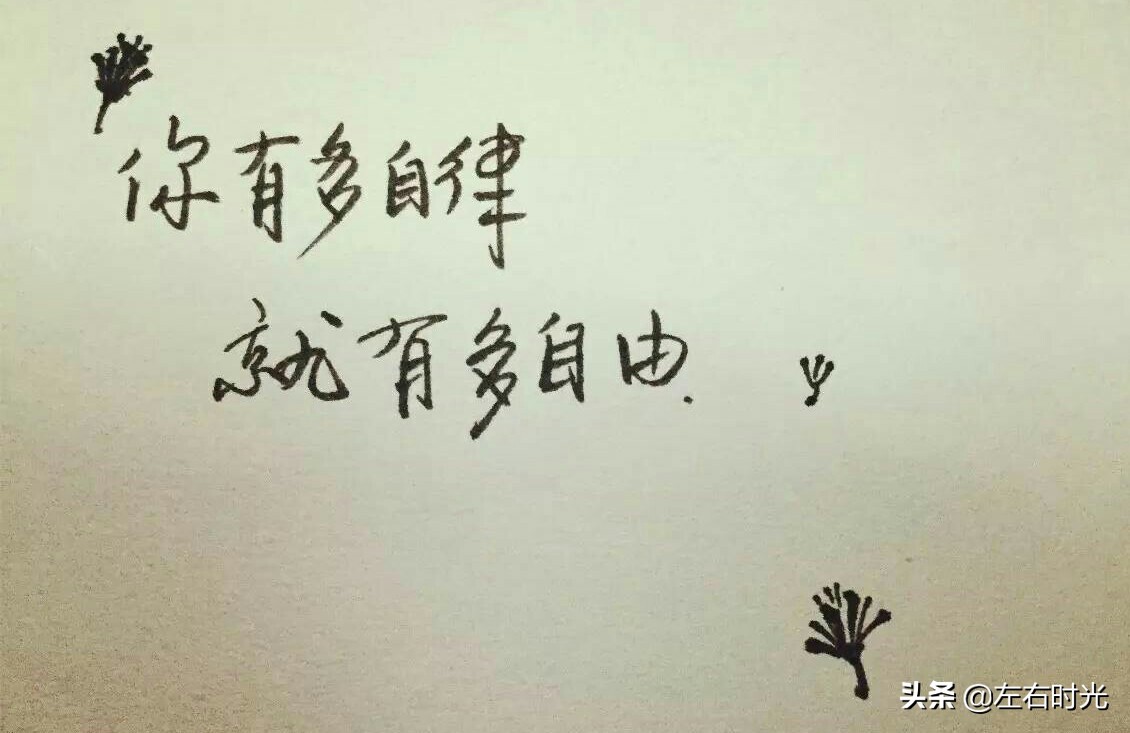 你有多自律
就有多自由.
头条 @左右时光